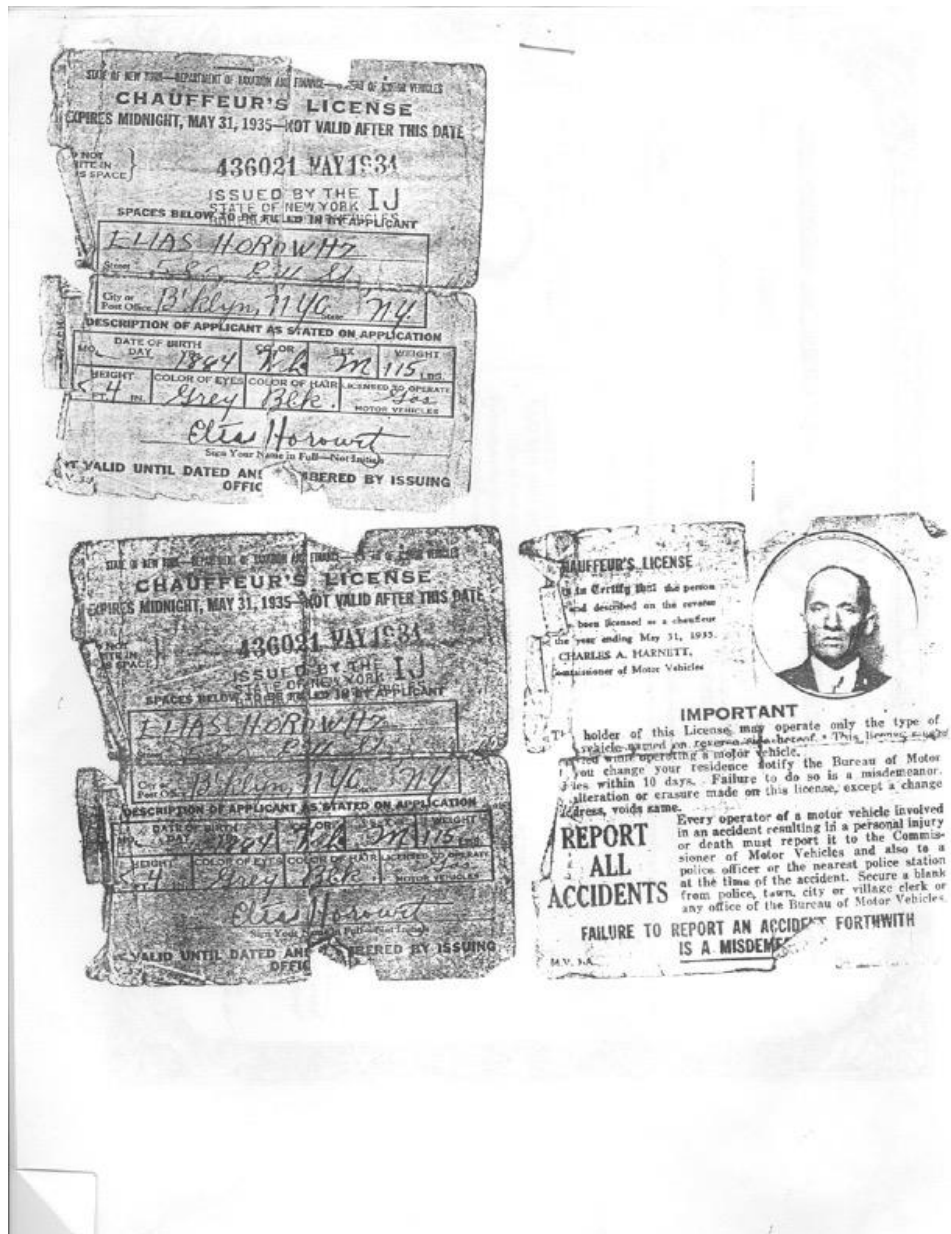 STATE OF NEW YORK—DEPARTMENT OF TAXATION AND FINANCE— OF MOTOR VEHICLES
CHAUFFEUR'S LICENSE
EXPIRES MIDNIGHT, MAY 31, 1935—NOT VALID AFTER THIS DATE
NOT
ITE IN
S SPACE
436021 MAY 1934
ISSUED BY THE IJ
STATE OF NEW YORK
SPACES BELOW TO BE FILLED IN BY APPLICANT
ELIAS HOROWITZ
Street
City or
Post Office B'klyn, NYC State N.Y.
DESCRIPTION OF APPLICANT AS STATED ON APPLICATION
DATE OF BIRTH COLOR SEX WEIGHT
MO. DAY 1884 Wh M 115 LBS.
HEIGHT COLOR OF EYES COLOR OF HAIR LICENSED TO OPERATE
5 FT. 4 IN. Grey Blk. Gas
MOTOR VEHICLES
Elias Horowit
Sign Your Name in Full—Not Initials
T VALID UNTIL DATED AND BERED BY ISSUING
OFFIC
STATE OF NEW YORK—DEPARTMENT OF TAXATION AND FINANCE— OF MOTOR VEHICLES
CHAUFFEUR'S LICENSE
EXPIRES MIDNIGHT, MAY 31, 1935—NOT VALID AFTER THIS DATE
NOT
ITE IN
SPACE
436021 MAY 1934
ISSUED BY THE IJ
STATE OF NEW YORK
SPACES BELOW TO BE FILLED IN BY APPLICANT
ELIAS HOROWITZ
City or
Post Office B'klyn, NYC N.Y.
DESCRIPTION OF APPLICANT AS STATED ON APPLICATION
DATE OF BIRTH COLOR SEX WEIGHT
MO. DAY YR. 1884 Wh M 115
HEIGHT COLOR OF EYES COLOR OF HAIR LICENSED TO OPERATE
5 4 Grey Blk. Gas
MOTOR VEHICLES
Elias Horowit
Sign Your Name in Full—Not Initials
VALID UNTIL DATED AND BERED BY ISSUING
OFFIC
HAUFFEUR'S LICENSE
is to Certify that the person
and described on the reverse
been licensed as a chauffeur
the year ending May 31, 1935.
CHARLES A. HARNETT,
Commissioner of Motor Vehicles
IMPORTANT
holder of this License may operate only the type of
vehicle named on reverse side hereof. This license must
ried while operating a motor vehicle.
you change your residence notify the Bureau of Motor
les within 10 days. Failure to do so is a misdemeanor.
alteration or erasure made on this license, except a change
dress, voids same.
REPORT
ALL
ACCIDENTS
Every operator of a motor vehicle involved
in an accident resulting in a personal injury
or death must report it to the Commis-
sioner of Motor Vehicles and also to a
police officer or the nearest police station
at the time of the accident. Secure a blank
from police, town, city or village clerk or
any office of the Bureau of Motor Vehicles.
FAILURE TO REPORT AN ACCIDENT FORTHWITH
IS A MISDEME
M.V. 3-A